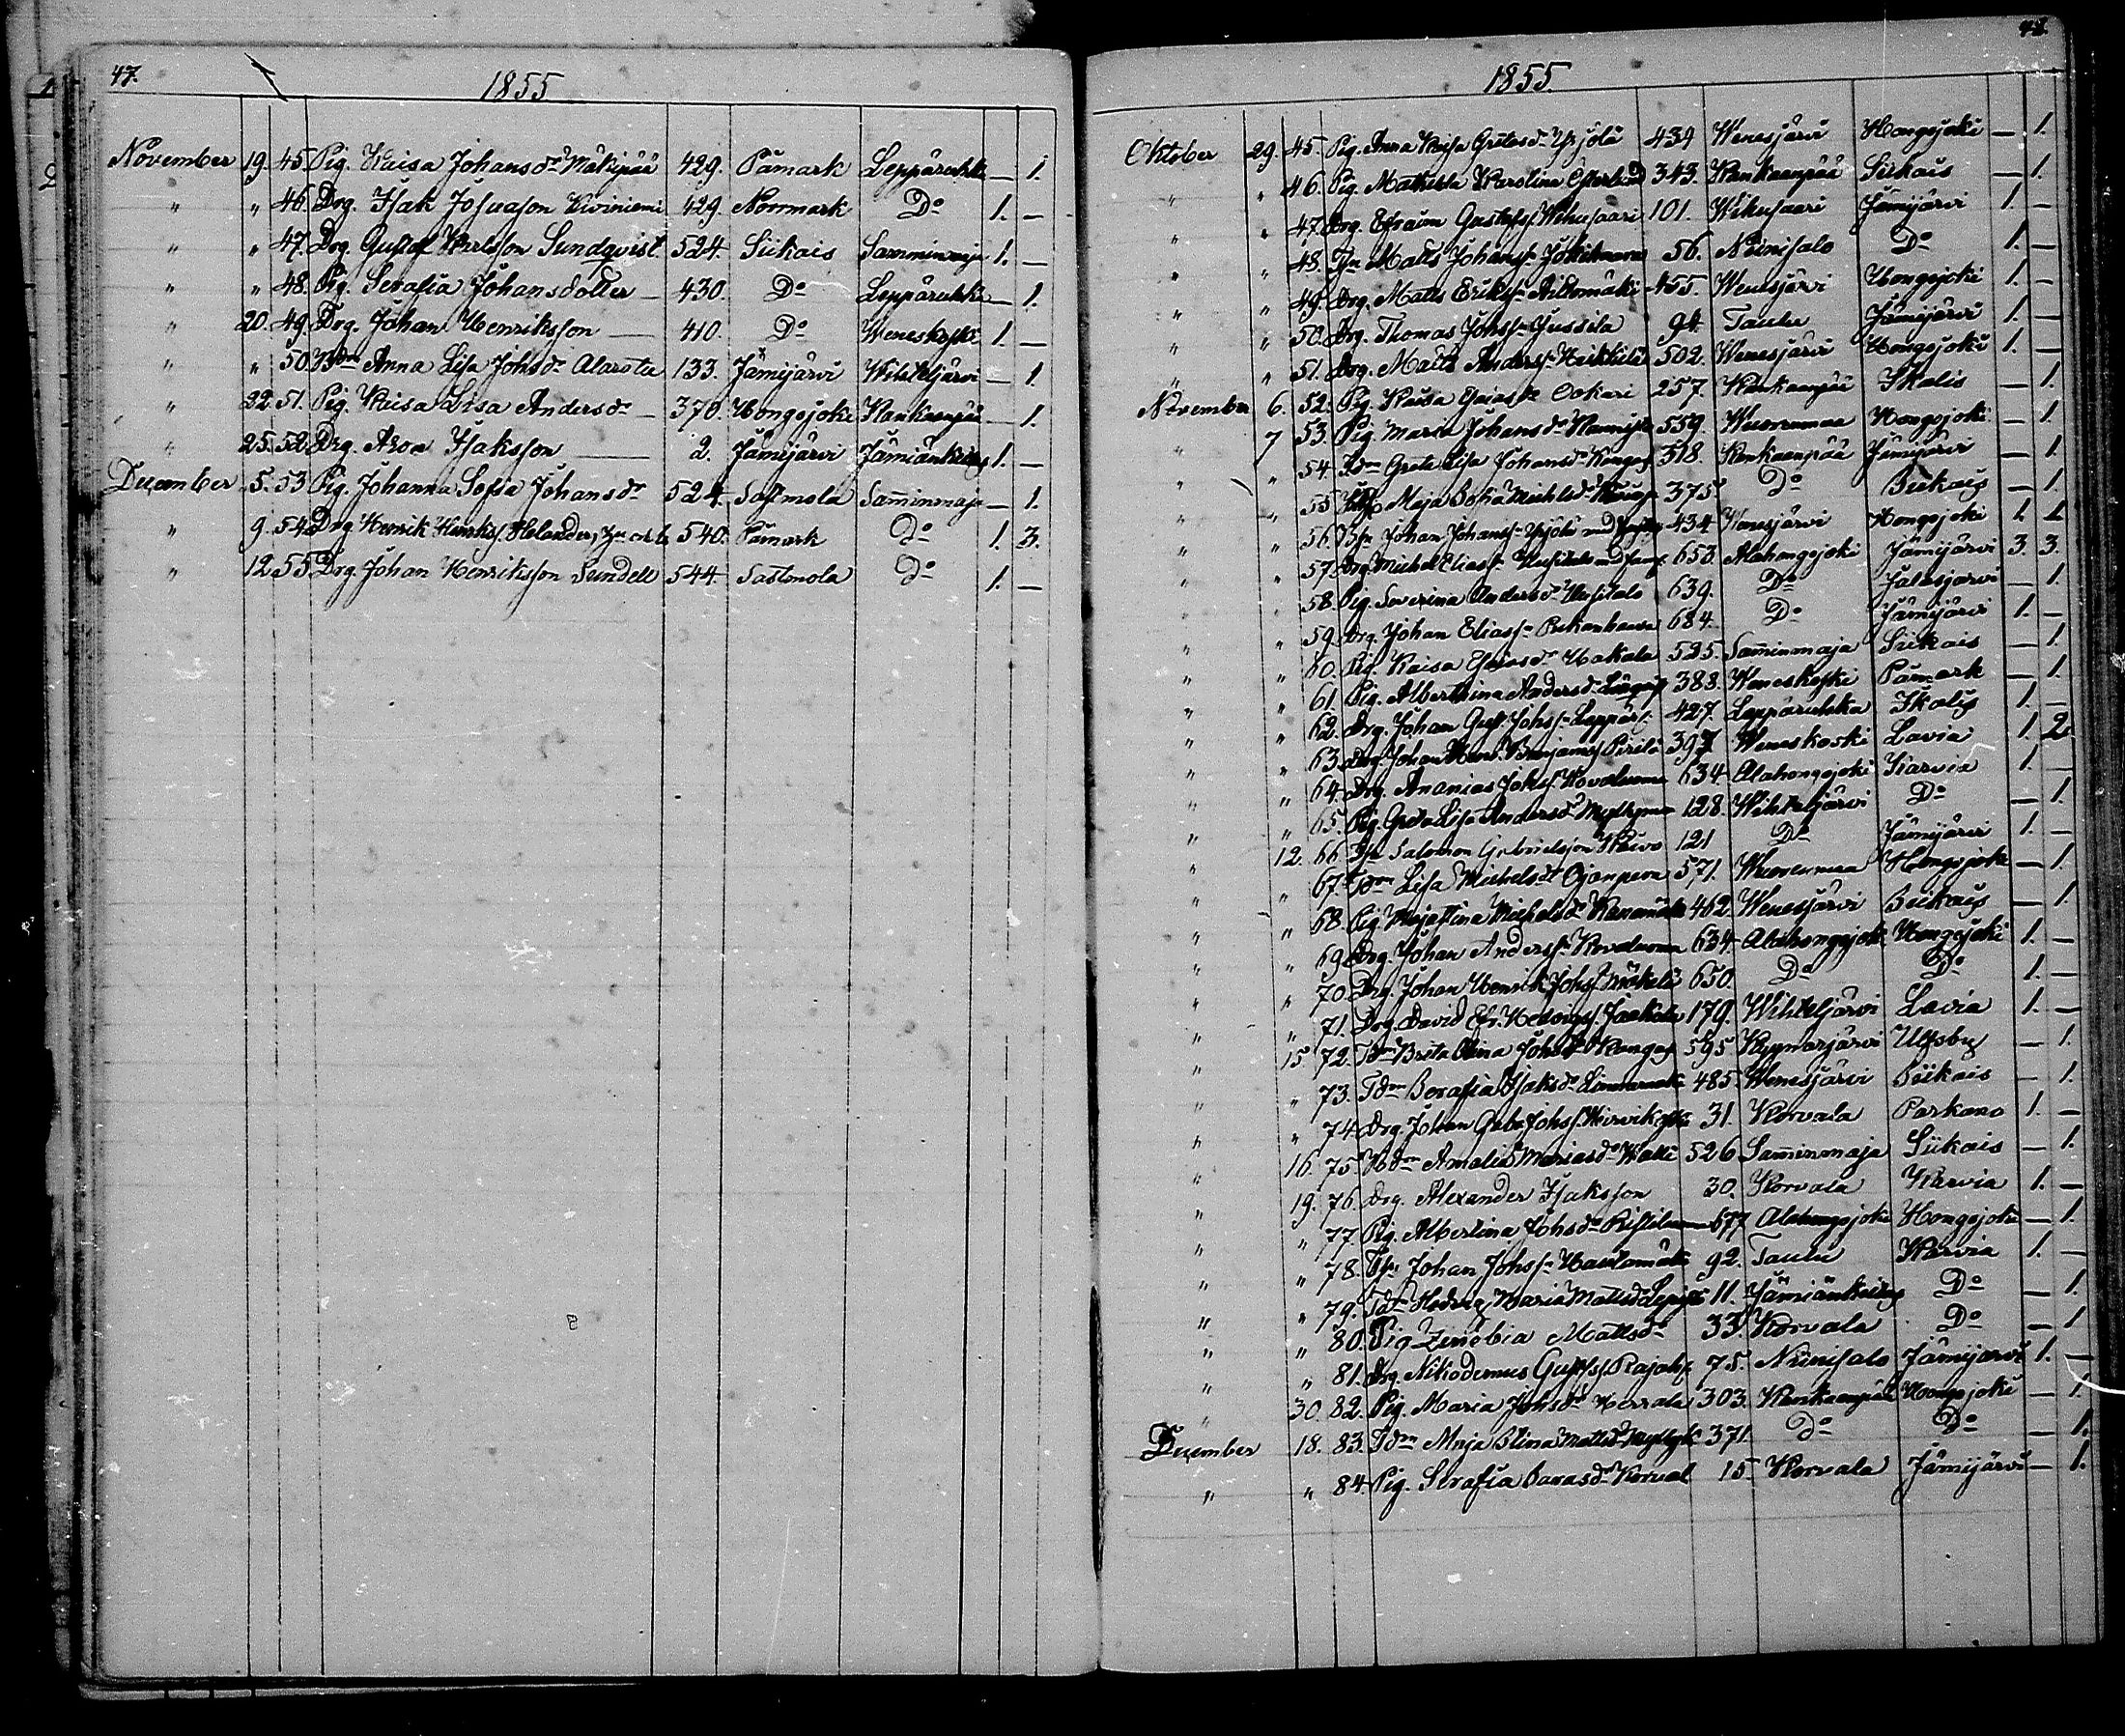 47.
1855
November 19. 45. Pig. Kaisa Johansdr Mäkipää 429. Påmark Leppäruhka — 1.
" " 46. Drg. Isak Josuason Kiviniemi 429. Norrmark Do 1. —
" " 47. Drg. Gustaf Karlsson Sundqvist 524. Siikais Samminmaja 1. —
" " 48. Pig. Serafia Johansdotter — 430. Do Leppäruhka — 1.
" 20. 49. Drg. Johan Henriksson — 410. Do Weneskoski 1. —
" " 50. Anna Lisa Johsdr Alarotu 133. Jämijärvi Wihteljärvi — 1.
" 22. 51. Pig. Kaisa Lisa Andersdr — 370. Hongojoki Kankaanpää — 1.
" 25. 52. Drg. Aron Isaksson — 2. Jämijärvi Jämiänkeidas 1. —
December 5. 53. Pig. Johanna Sofia Johansdr 524. Sastmola Samminmaja — 1.
" 9. 54. Drg. Henrik Henriks. Helander, 540. Påmark Do 1. 3.
" 12. 55. Drg. Johan Henriksson Sundell 544. Sastmola Do 1. —
48.
1855.
Oktober 29. 45. Pig. Anna Kaisa Gretasdr Yrjölä 439 Wenesjärvi Hongojoki — 1.
" " 46. Pig. Mathilda Karolina Esterlund 343. Kankaanpää Siikais — 1.
" " 47. Drg. Efraim Gustafss. Wihusaari 101. Wihusaari Jämijärvi 1. —
" " 48. Matts Johanss. 56. Niinisalo Do 1. —
" " 49. Drg. Matts Erikss. Aittomäki 455. Wenesjärvi Hongojoki 1. —
" " 50. Drg. Thomas Johss. Jussila 94. Taulu Jämijärvi 1. —
" " 51. Drg. Matts Anderss. Heikkilä 502. Wenesjärvi Hongojoki 1. —
November 6. 52. Pig. Kaisa Esaiasdr 257. Kankaanpää Ikalis — 1.
" 7 53. Pig. Maria Johansdr 559. Wuorenmaa Hongojoki — 1.
" " 54. Greta Lisa Johansdr 318. Kankaanpää Jämijärvi — 1.
" " 55 Maja Sofia Michelsdr 375. Do Siikais — 1.
" " 56. Johan Johanss. Yrjölä med 434 Wenesjärvi Hongojoki 1. 1.
" " 57. Drg. Michel Eliass. med 653. Alahongojoki Jämijärvi 3. 3.
" " 58. Pig. Severina Andersdr 639. Do Jalasjärvi — 1.
" " 59. Drg. Johan Eliass. 684. Do Jämijärvi 1. —
" " 60. Pig. Kaisa Esaiasdr Hakala 525. Samminmaja Siikais — 1.
" " 61. Pig. Albertina Andersdr 388. Weneskoski Påmark — 1.
" " 62. Drg. Johan Gust. Johss. 427. Leppäruhka Ikalis 1. —
" " 63. Drg. Johan Henr. Benjamins. Pirilä 397 Weneskoski Lavia 1. 2.
" " 64. Drg. Ananias Johs. 634. Alahongojoki Karvia 1. —
" " 65. Pig. Greta Lisa Andersdr 128. Wihteljärvi Do — 1.
" 12. 66. Salomon Gabrielsson 121 Do Jämijärvi 1. —
" " 67. Lisa Michelsdr Ojanperä 571. Wuorenmaa Hongojoki — 1.
" " 68. Pig. Majastina Michelsdr 462 Wenesjärvi Siikais — 1.
" " 69. Drg. Johan Anderss. 634 Alahongojoki Hongojoki 1. —
" " 70. Drg. Johan Henrik Johss. Mäkelä 650. Do Do 1. —
" " 71. Drg. David Jaakola 179. Wihteljärvi Lavia 1. —
" 15. 72. Brita Stina Johsdr 595 Kyynärjärvi Ulfsby — 1.
" " 73. Serafia Isaksdr 485 Wenesjärvi Siikais — 1.
" " 74. Drg. Johan Johss. 31. Korvala Parkano 1. —
" 16. 75. Amalia Mariasdr 526 Samminmaja Siikais — 1.
" 19. 76. Drg. Alexander Isaksson 30. Korvala Karvia 1. —
" " 77. Pig. Albertina Johsdr 677 Alahongojoki Hongojoki — 1.
" " 78. Johan Johss. Hautamäki 92. Taulu Karvia 1. —
" " 79. Hedvig Maria Mattsdr 11. Jämiänkeidas Do — 1.
" " 80. Pig. Zenobia Mattsdr 33. Korvala Do — 1
" " 81. Drg. Nikodemus Gustfs. 75. Niinisalo Jämijärvi 1. —
" 30. 82. Pig. Maria Johsdr Herrala 303. Kankaanpää Hongojoki — 1.
December 18. 83. Maja Stina Mattsdr 371. Do Do — 1.
" " 84. Pig. Serafia Sarasdr 15. Korvala Jämijärvi — 1.